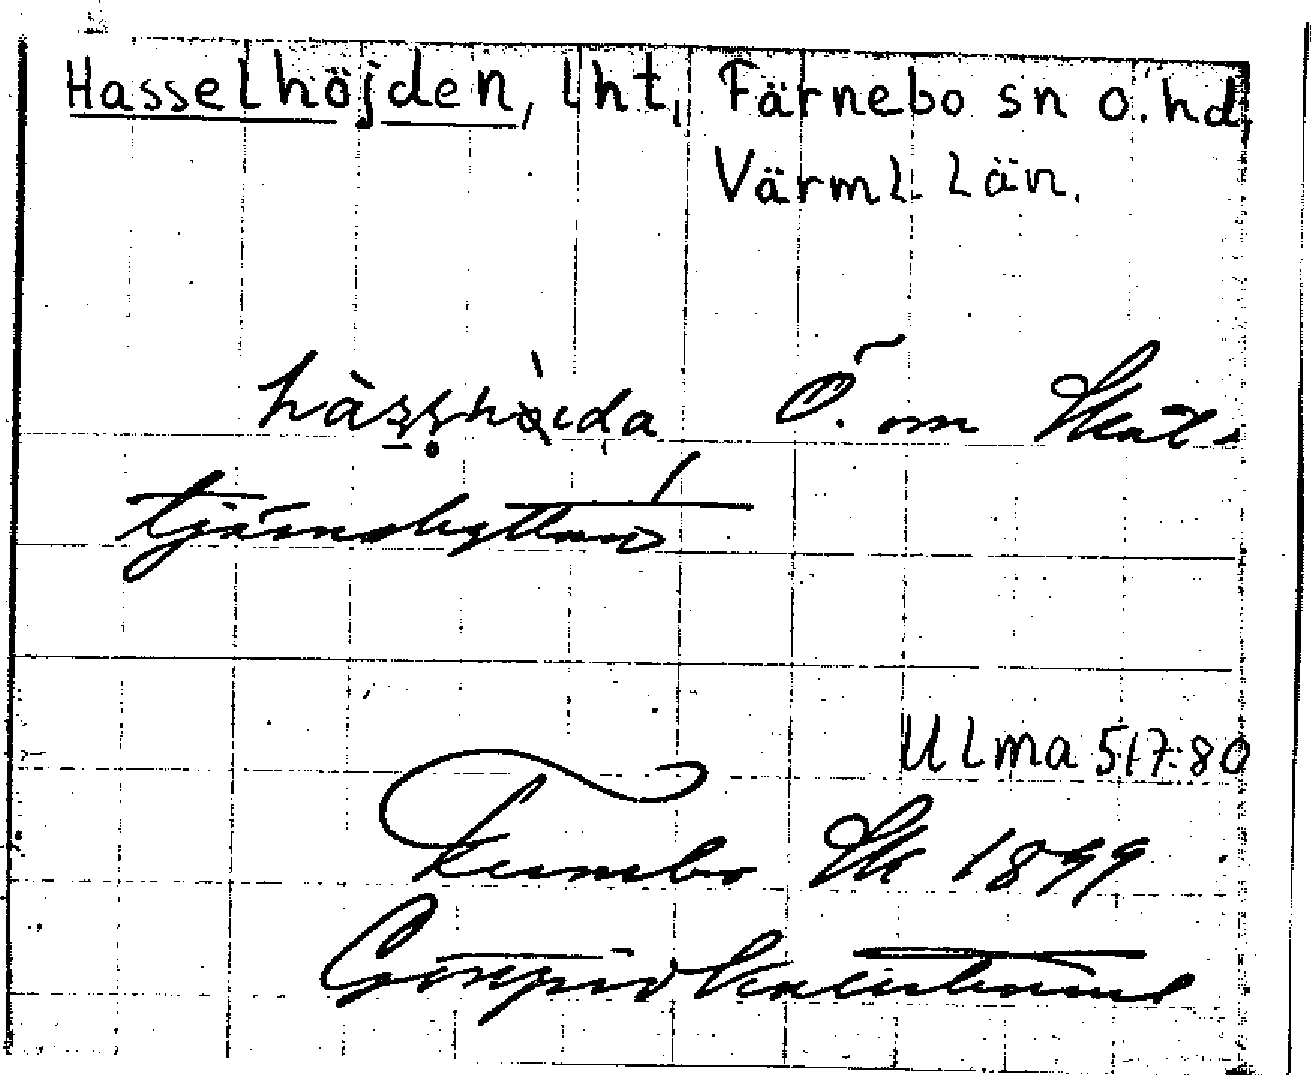 Hasselhöjden, lht, Färnebo sn o. hd,
Värml. län.
Ö. om Skål-
tjärnshyttan
Ulma 517:80
Fernebo Sk 1899